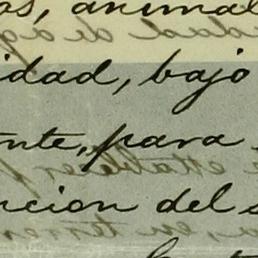 os, animal
idad, bajo
ente, para
ncion del s